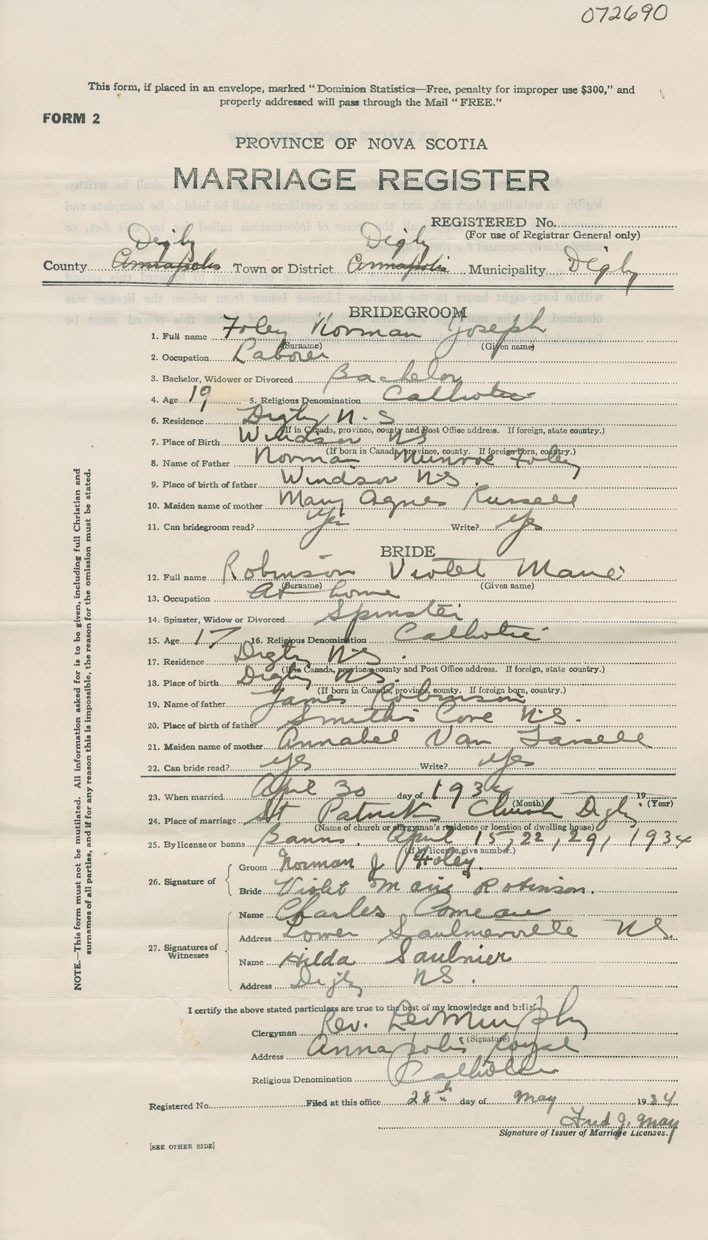 072690
This form, if placed in an envelope, marked "Dominion Statistics—Free, penalty for improper use $300," and
properly addressed will pass through the Mail "FREE."
FORM 2
PROVINCE OF NOVA SCOTIA
MARRIAGE REGISTER
REGISTERED No.
(For use of Registrar General only)
Digby Digby
County Annapolis Town or District Annapolis Municipality Digby
BRIDEGROOM
1. Full name Foley Norman Joseph
(Surname) (Given name)
2. Occupation Laborer
3. Bachelor, Widower or Divorced Bachelor
4. Age 19 5. Religious Denomination Catholic
6. Residence Digby N.S
(If in Canada, province, county and Post Office address. If foreign, state country.)
7. Place of Birth Windsor NS
(If born in Canada, province, county. If foreign born, country.)
8. Name of Father Norman Munroe Foley
9. Place of birth of father Windsor N.S.
10. Maiden name of mother Mary Agnes Russell
11. Can bridegroom read? Yes Write? Yes
BRIDE
12. Full name Robinson Violet Marie
(Surname) (Given name)
13. Occupation At home
14. Spinster, Widow or Divorced Spinster
15. Age 17 16. Religious Denomination Catholic
17. Residence Digby N.S.
(If in Canada, province, county and Post Office address. If foreign, state country.)
18. Place of birth Digby N.S.
(If born in Canada, province, county. If foreign born, country.)
19. Name of father James Robinson
20. Place of birth of father Smiths Cove N.S.
21. Maiden name of mother Annabel Van
22. Can bride read? yes Write? yes
23. When married April 30 day of 1934 19
(Month) (Year)
24. Place of marriage St Patricks Church Digby
(Name of church or clergyman's residence or location of dwelling house)
25. By license or banns Banns. April 15, 22, 29, 1934
(If by license, give number.)
26. Signature of
Groom Norman J Foley.
Bride Violet Marie Robinson.
27. Signatures of Witnesses
Name Charles Comeau
Address Lower Saulnierville N.S.
Name Hilda Saulnier
Address Digby NS.
I certify the above stated particulars are true to the best of my knowledge and belief.
Clergyman Rev. Leo Murphy
(Signature)
Address Annapolis Royal
Religious Denomination Catholic
Registered No. Filed at this office 28th day of May 1934
Fred J. May
Signature of Issuer of Marriage Licenses.
[SEE OTHER SIDE]
NOTE.—This form must not be mutilated. All information asked for is to be given, including full Christian and
surnames of all parties, and if for any reason this is impossible, the reason for the omission must be stated.